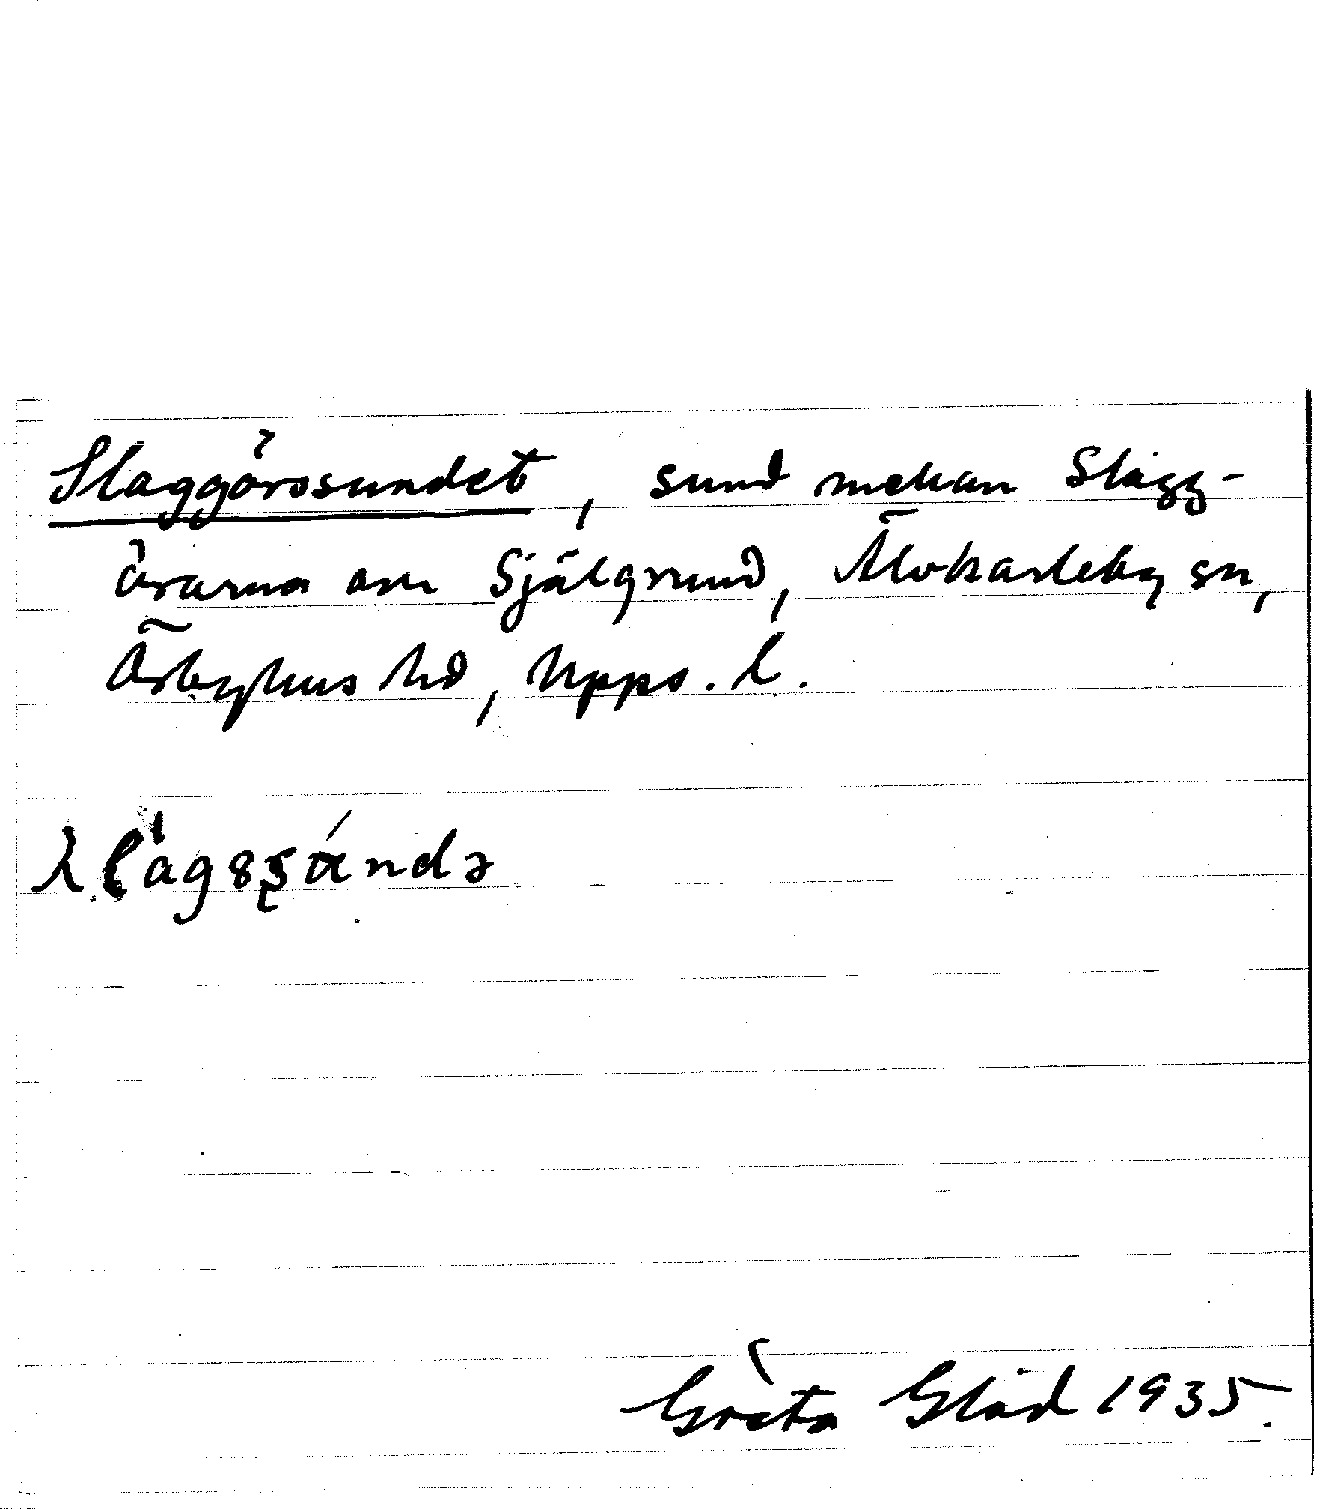 Slaggörssundet, sund mellan Slagg-
örarna om Själgrund, Älvkarleby sn,
Örbyhus hd, Upps. l.
Greta Gläd 1935.